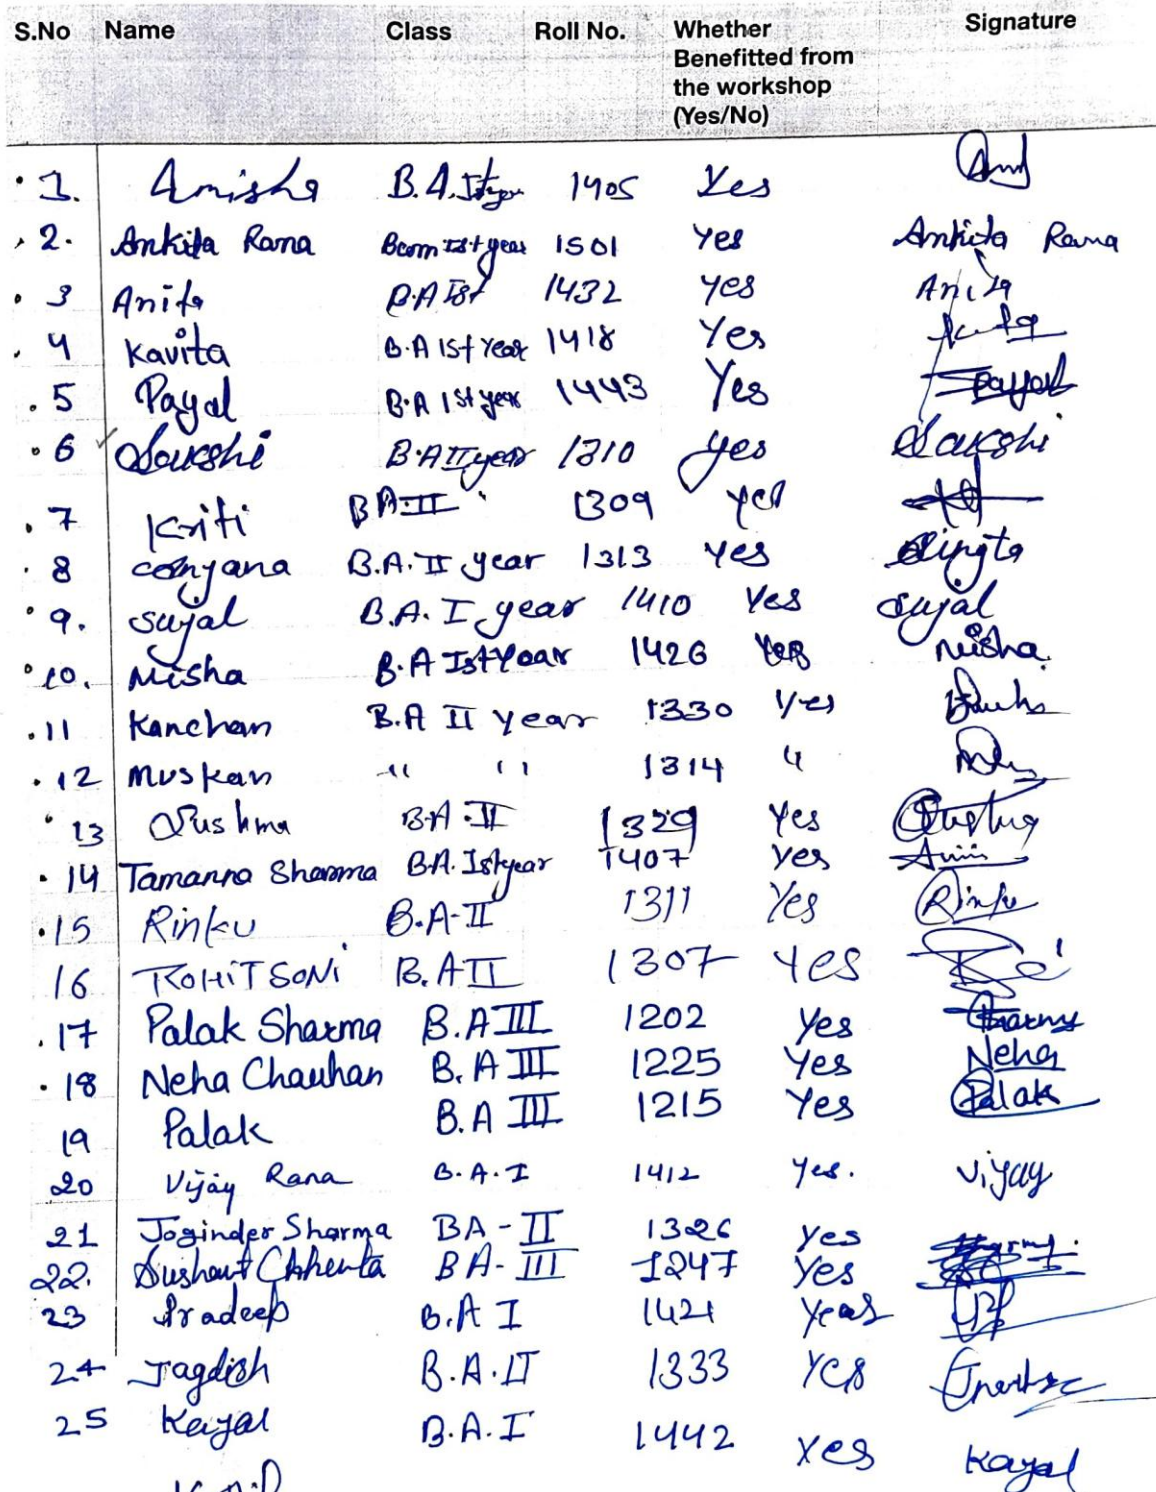 S.No Name Class Roll No. Whether Benefitted from the workshop (Yes/No) Signature
1. Amisha B.A. Ist year 1405 Yes
2. Ankita Rana Bcom Ist year 1501 Yes Ankita Rana
3 Anita B.A Ist 1432 yes Anita
4 Kavita B.A 1st Year 1418 Yes
5 Payal B.A 1st year 1443 Yes Payal
6 Sakshi B.A II year 1310 yes Sakshi
7 Kriti BA II " 1309 yes
8 B.A. II year 1313 yes
9. Sujal B.A. I year 1410 Yes Sujal
10. Nisha B.A Ist Year 1426 Yes Nisha
11 Kanchan B.A II year 1330 Yes
12 Muskan " " 1314 "
13 Sushma B.A. II 1329 Yes
14 Tamanna Sharma B.A. Ist year 1407 Yes
15 Rinku B.A-II 1311 Yes Rinku
16 ROHIT SONI B.A II 1307 Yes
17 Palak Sharma B.A III 1202 Yes Sharma
18 Neha Chauhan B.A III 1225 Yes Neha
19 Palak B.A III 1215 Yes Palak
20 Vijay Rana B.A.I 1412 Yes. Vijay
21 Joginder Sharma BA-II 1326 Yes
22. Sushant Chhenta BA-III 1247 Yes
23 Pradeep B.A I 1421 Yeas
24 Jagdish B.A.II 1333 Yes
25 Kajal B.A.I 1442 Yes Kajal